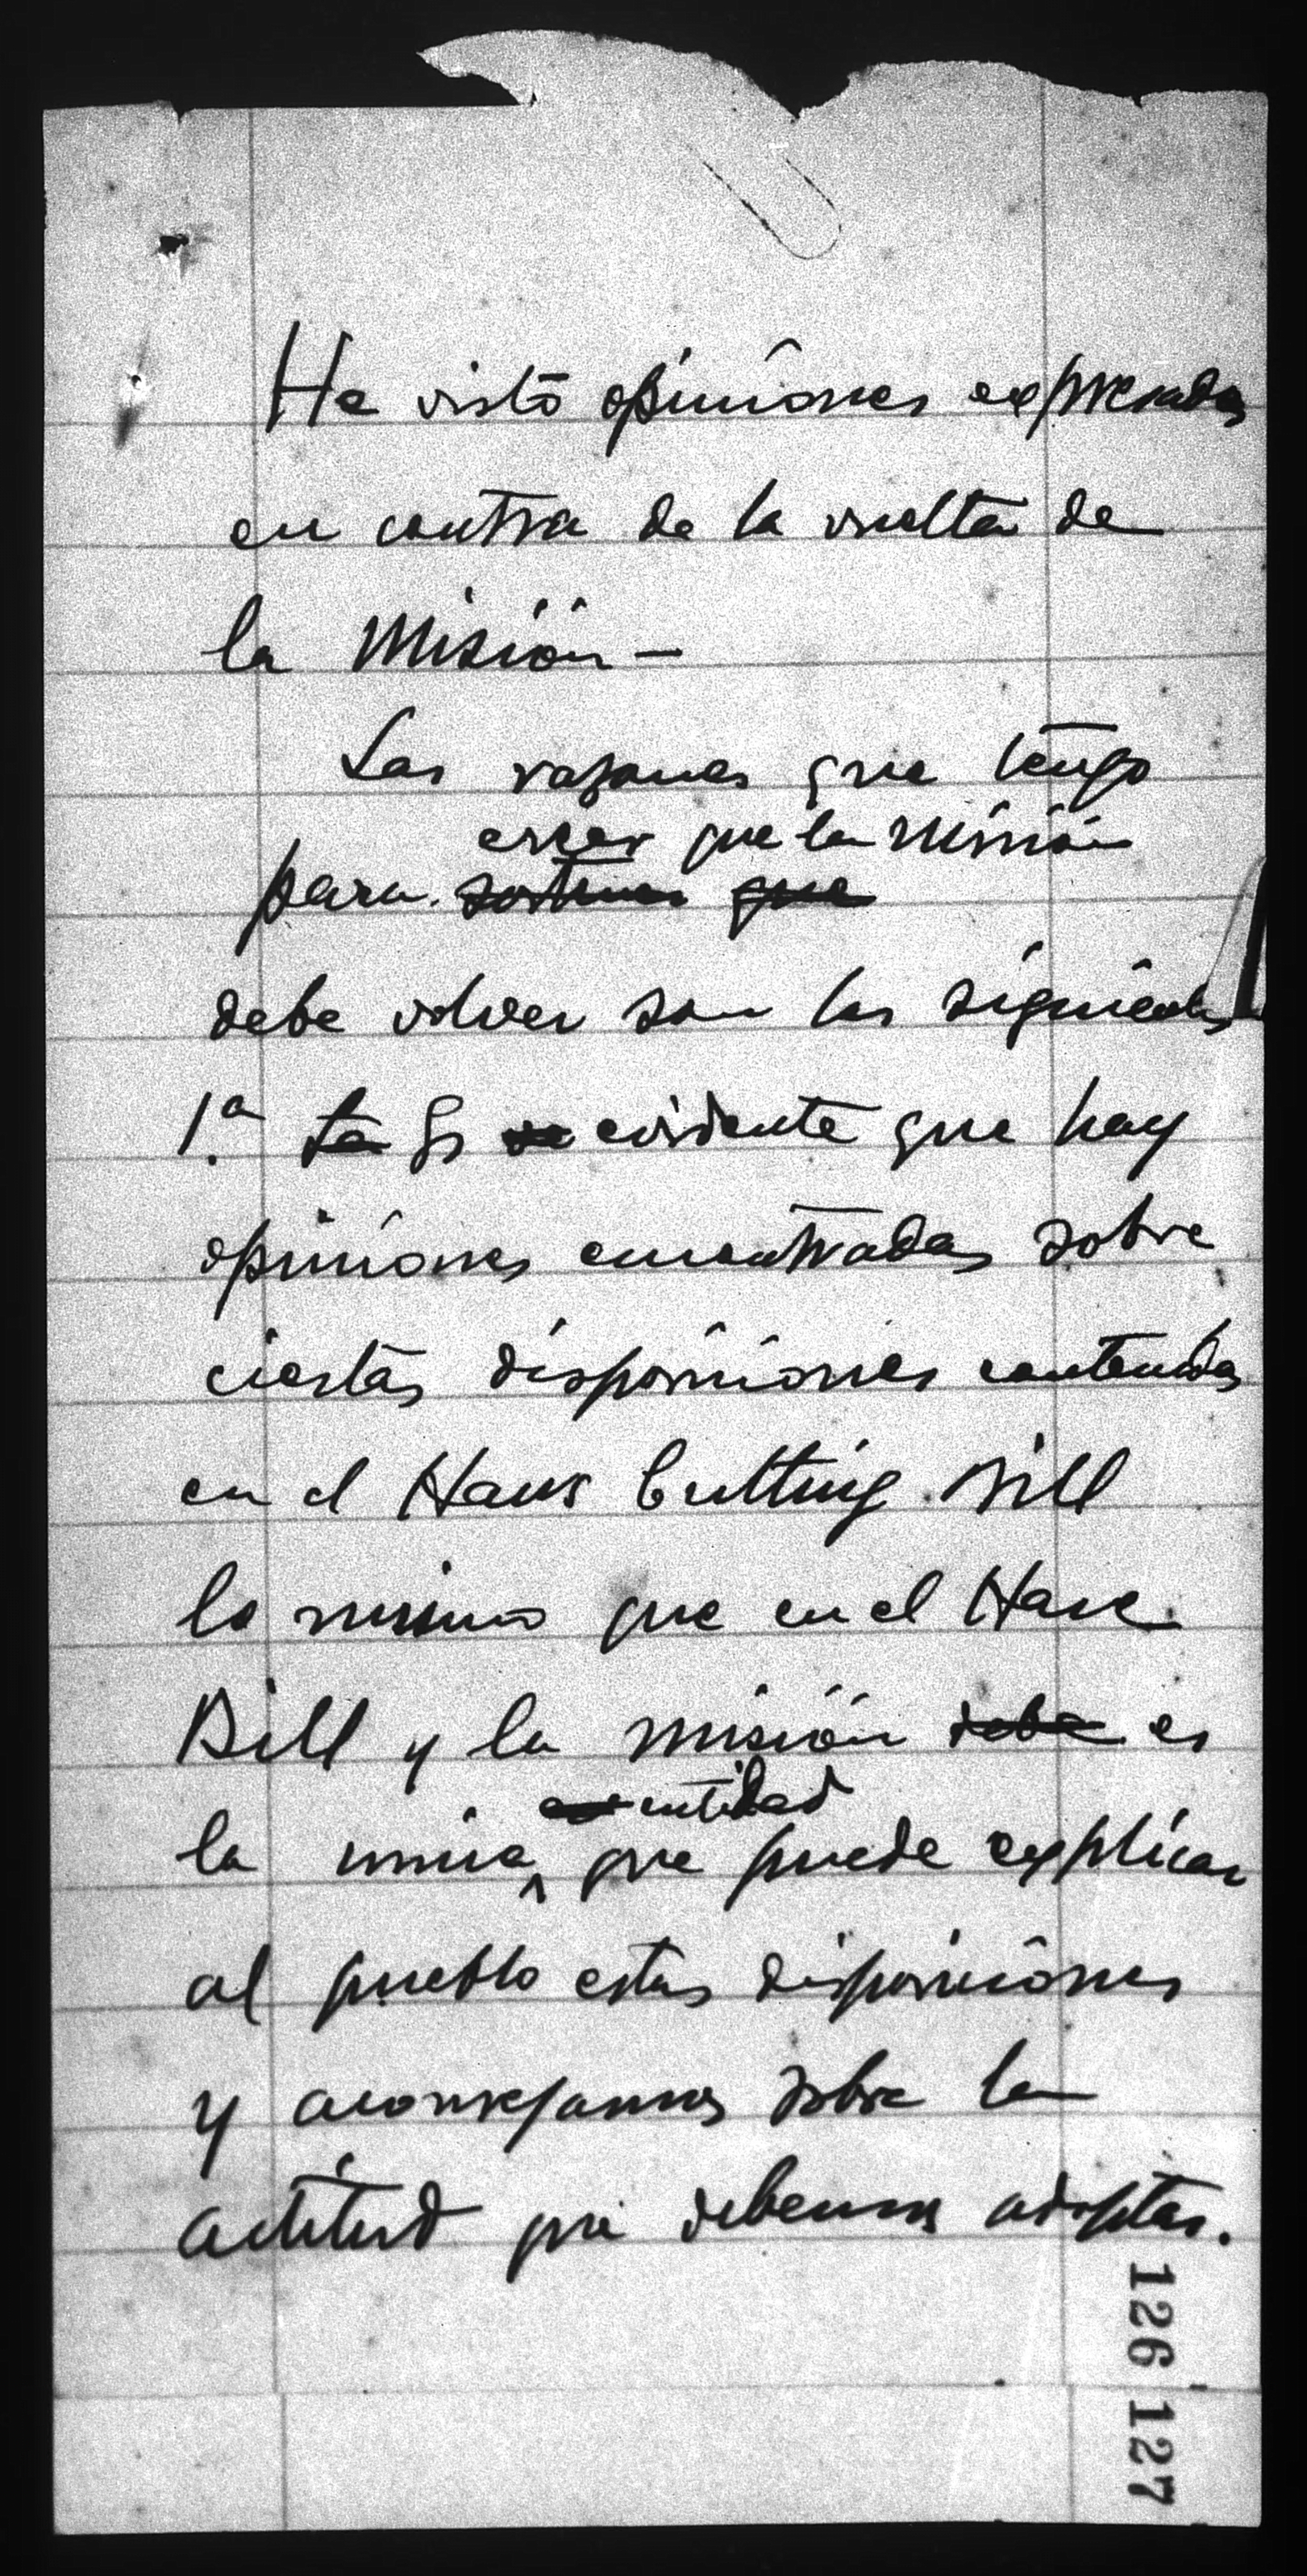 He visto opiniones expresadas
en contra de la vuelta de
la Misión —
Las razones que tengo
creer que la Misión
para sostener que
debe volver son las siguientes
1.a La Es evidente que hay
opiniones encontradas sobre
ciertas disposiciones contenidas
en el Haws Cutting Bill
lo mismo que en el Hare
Bill y la misión debe es
entidad
la unica que puede explicar
al pueblo estas disposiciones
y aconsejarnos sobre la
actitud que debemos adoptar.
126 127